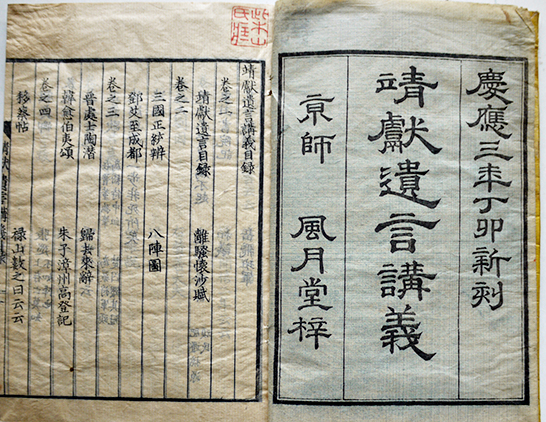 慶應三年丁卯新刻
靖獻遺言講義
京師 風月堂梓
靖獻遺言講義目録
卷之一
靖獻遺言目録 離騷懷沙賦
卷之二
三國正統辨 八陣圖
鄧艾至成都
卷之三
晉處士陶潛 歸去來辭
韓愈伯夷頌 朱子漳州高登記
卷之四
移蔡帖 祿山
之曰云云